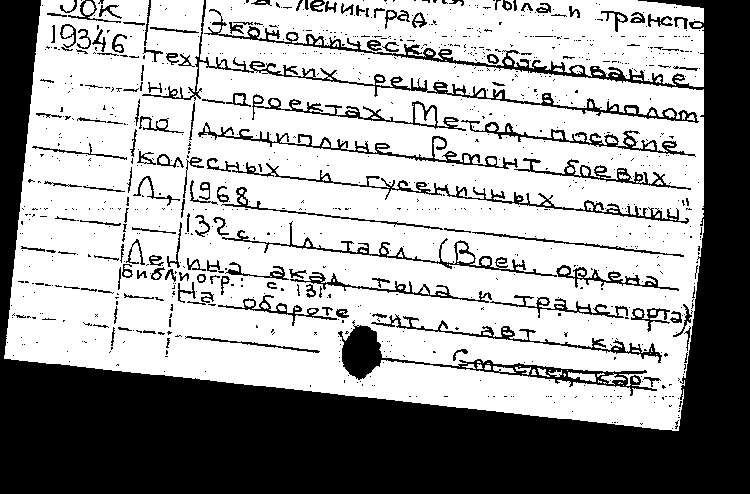 тыла и транспо
Ленинград.
ЭОК
19346
Экономическое обоснование
технических решений в диплом-
ных проектах. Метод. пособие
по дисциплине „Ремонт боевых
колесных и гусеничных машин".
Л., 1968.
132 с.; 1 л. табл. (Воен. ордена
Ленина акад. тыла и транспорта)
Библиогр.: с. 131.
На обороте тит. л. авт.: канд.
См. след. карт.